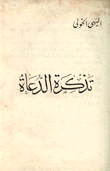 البهي الخولي
تذكرة الدعاة